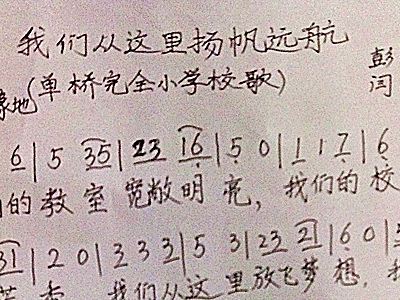 我们从这里扬帆远航
(单桥完全小学校歌) 彭
豪地 闫
6 | 5 35 | 23 16 | 5 0 | 1 1 7 | 6
的教室宽敞明亮，我们的校
31 | 2 0 | 3 3 3 | 5 3 | 23 21 | 6 0 |
我们从这里放飞梦想，